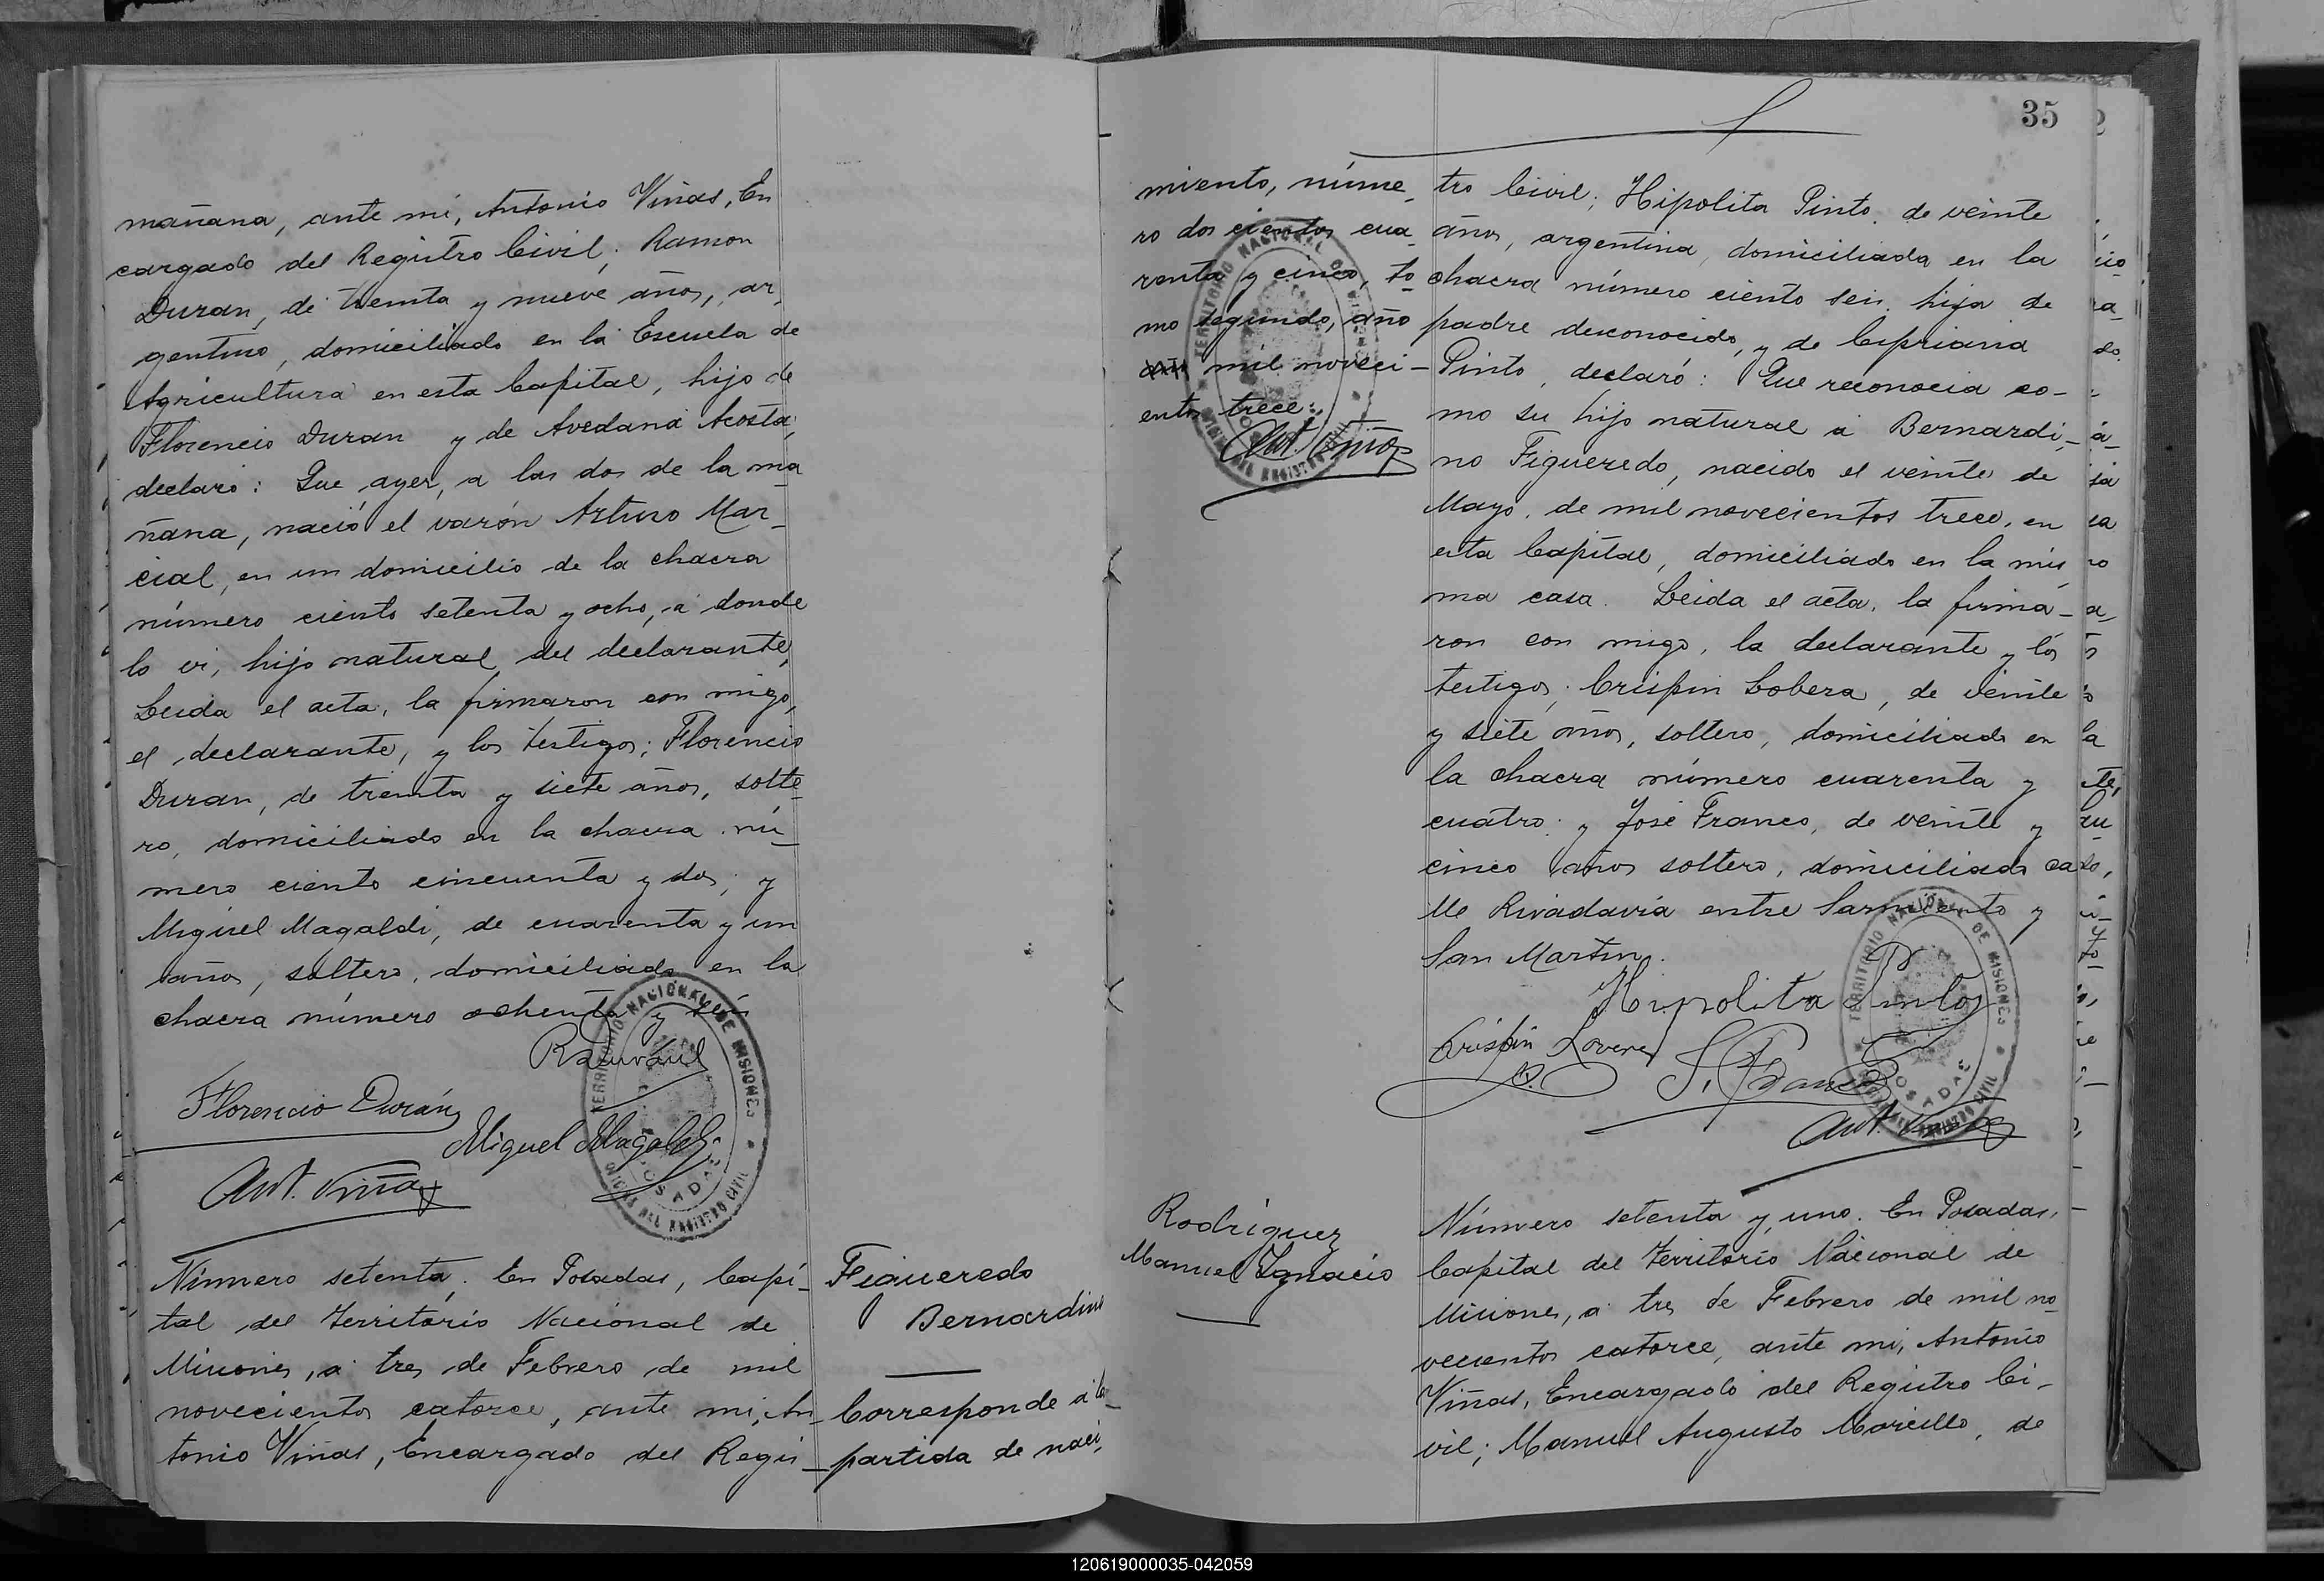 mañana, ante mí, Antonio Viñas, En
cargado del Registro Civil; Ramon
Duran, de treinta y nueve años, ar_
gentino, domiciliado en la Escuela de
Agricultura en esta Capital, hijo de
Florencio Duran y de Avedana Acosta,
declaró: Que ayer, a las dos de la ma
ñana, nació el varón Arturo Mar_
cial, en un domicilio de la chacra
número ciento setenta y ocho, a donde
lo vi, hijo natural del declarante,
Leida el acta, la firmaron con migo,
el declarante, y los testigos; Florencio
Duran, de treinta y siete años, solte_
ro, domiciliado en la chacra nú_
mero ciento cincuenta y dos; y
Miguel Magaldi, de cuarenta y un
años, soltero, domiciliado en la
chacra número ochenta y seis
Florencio Durán
Miguel Magaldi
Ant. Viñas
TERRITORIO NACIONAL DE MISIONES
OFICINA DEL REGISTRO CIVIL
POSADAS
Número setenta. En Posadas, Capi_
tal del Territorio Nacional de
Misiones, a tres de Febrero de mil
novecientos catorce, ante mi, An_
tonio Viñas, Encargado del Regis_
Figueredo
Bernardino
Corresponde a la
partida de naci_
35
miento, núme_
ro dos cientos cua_
renta y cinco, to_
mo segundo, año
mil noveci_
entos trece.
Ant. Viñas
TERRITORIO NACIONAL DE MISIONES
OFICINA DEL REGISTRO CIVIL
tro Civil; Hipolita Pinto de veinte
años, argentina, domiciliada en la
chacra número ciento seis, hija de
padre desconocido, y de Cipriana
Pinto, declaró: Que reconocia co_
mo su hijo natural a Bernardi_
no Figueredo, nacido el veinte de
Mayo, de mil novecientos trece, en
esta Capital, domiciliado en la mis
ma casa. Leida el acta, la firma_
ron con migo, la declarante y los
testigos; Crispin Lobera, de veinte
y siete años, soltero, domiciliado en
la chacra número cuarenta y
cuatro; y José Franco, de veinte y
cinco años soltero, domiciliado ca
lle Rivadavia entre Sarmiento y
San Martin.
Hipolita Pinto
Crispin Lovera
J. Franco
Ant. Viñas
TERRITORIO NACIONAL DE MISIONES
OFICINA DEL REGISTRO CIVIL
POSADAS
Rodríguez
Manuel Ignacio
Número setenta y uno. En Posadas,
Capital del Territorio Nacional de
Misiones, a tres de Febrero de mil no_
vecientos catorce, ante mi, Antonio
Viñas, Encargado del Registro Ci_
vil; Manuel Augusto Morcillo, de
120619000035-042059